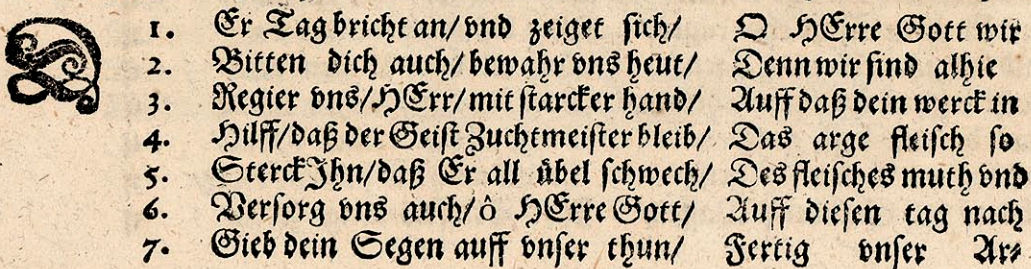 D
1. Er Tag bricht an/ vnd zeiget sich/ O HErre Gott wir
2. Bitten dich auch/ bewahr vns heut/ Denn wir sind alhie
3. Regier vns/ HErr/ mit starcker hand/ Auff daß dein werck in
4. Hilff/ daß der Geist Zuchtmeister bleib/ Das arge fleisch so
5. Sterck Ihn/ daß Er all übel schwech/ Des fleisches muth vnd
6. Versorg vns auch/ ô HErre Gott/ Auff diesen tag nach
7. Gieb dein Segen auff vnser thun/ Fertig vnser Ar⸗